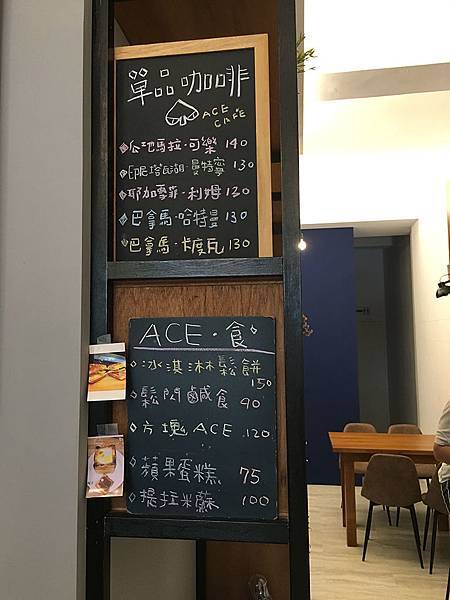 單品咖啡
ACE
CAFE
瓜地馬拉·可樂 140
印尼塔瓦湖·曼特寧 130
耶加雪菲·利姆 130
巴拿馬·哈特曼 130
巴拿馬·卡度瓦 130
ACE·食
冰淇淋鬆餅
150
鬆門鹹食 90
方塊ACE 120
蘋果蛋糕 75
提拉米蘇 100